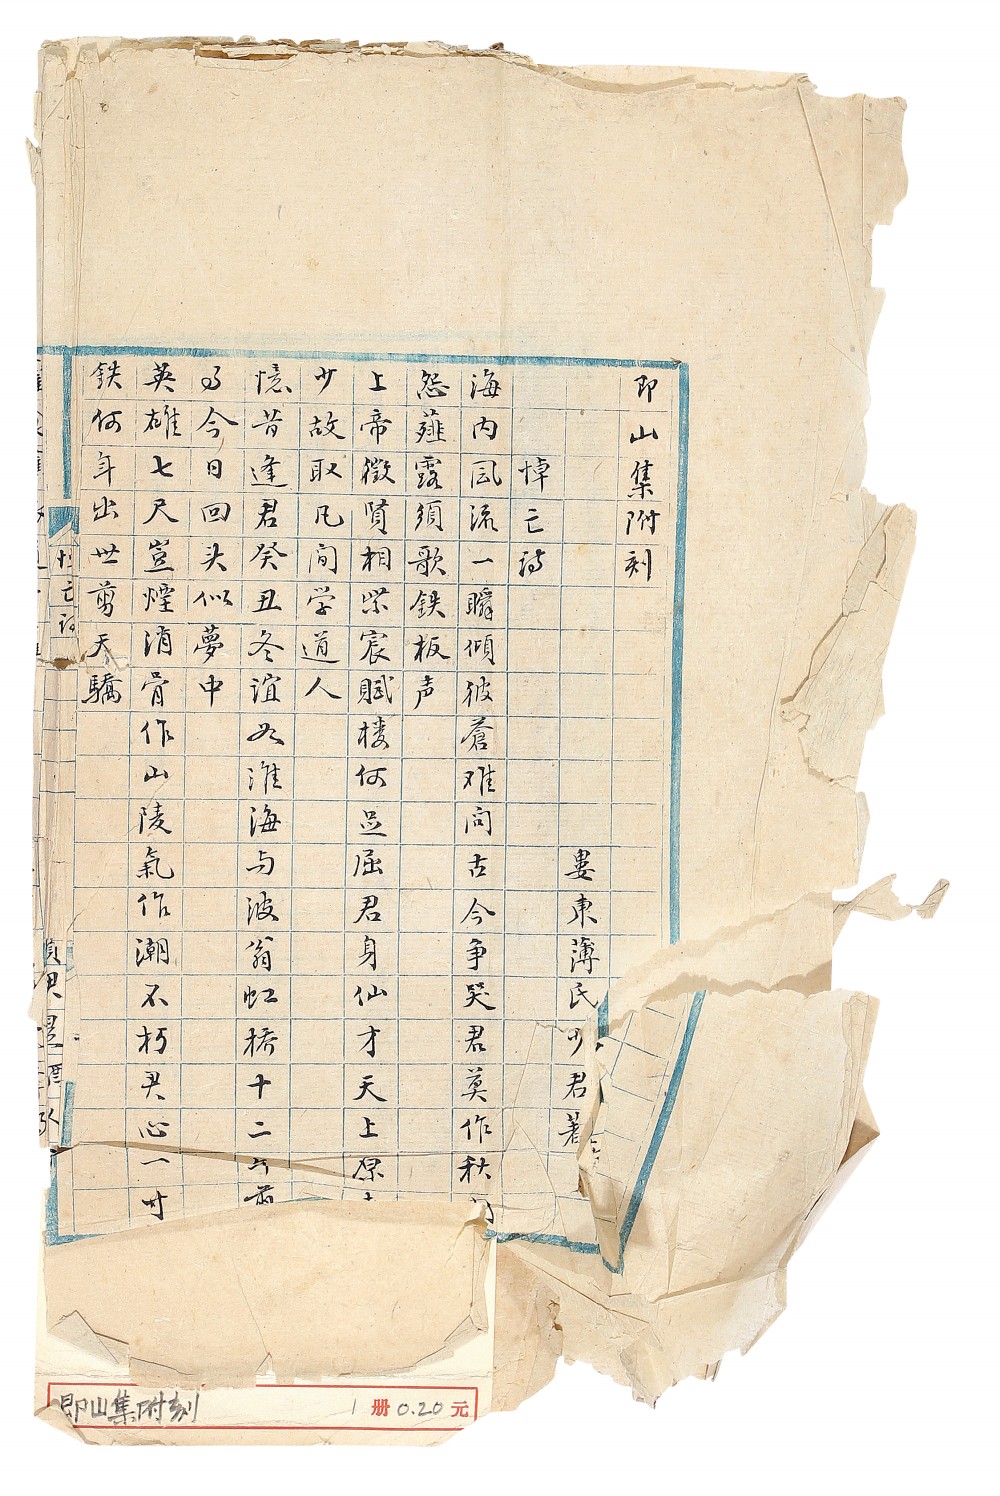 即山集附刻
婁東薄氏少君著
悼亡诗
海内风流一瞬傾彼蒼难问古今争哭君莫作秋
怨薤露須歌鉄板声
上帝徵賢相紫宸賦楼何足屈君身仙才天上原
少故取凡间学道人
憶昔逢君癸丑冬谊如淮海与波翁虹橋十二
今日回头似夢中
英雄七尺豈煙消骨作山陵氣作潮不朽君心一寸
鉄何年出世剪天驕
悼亡诗
即山集附刻 1 册 0.20 元